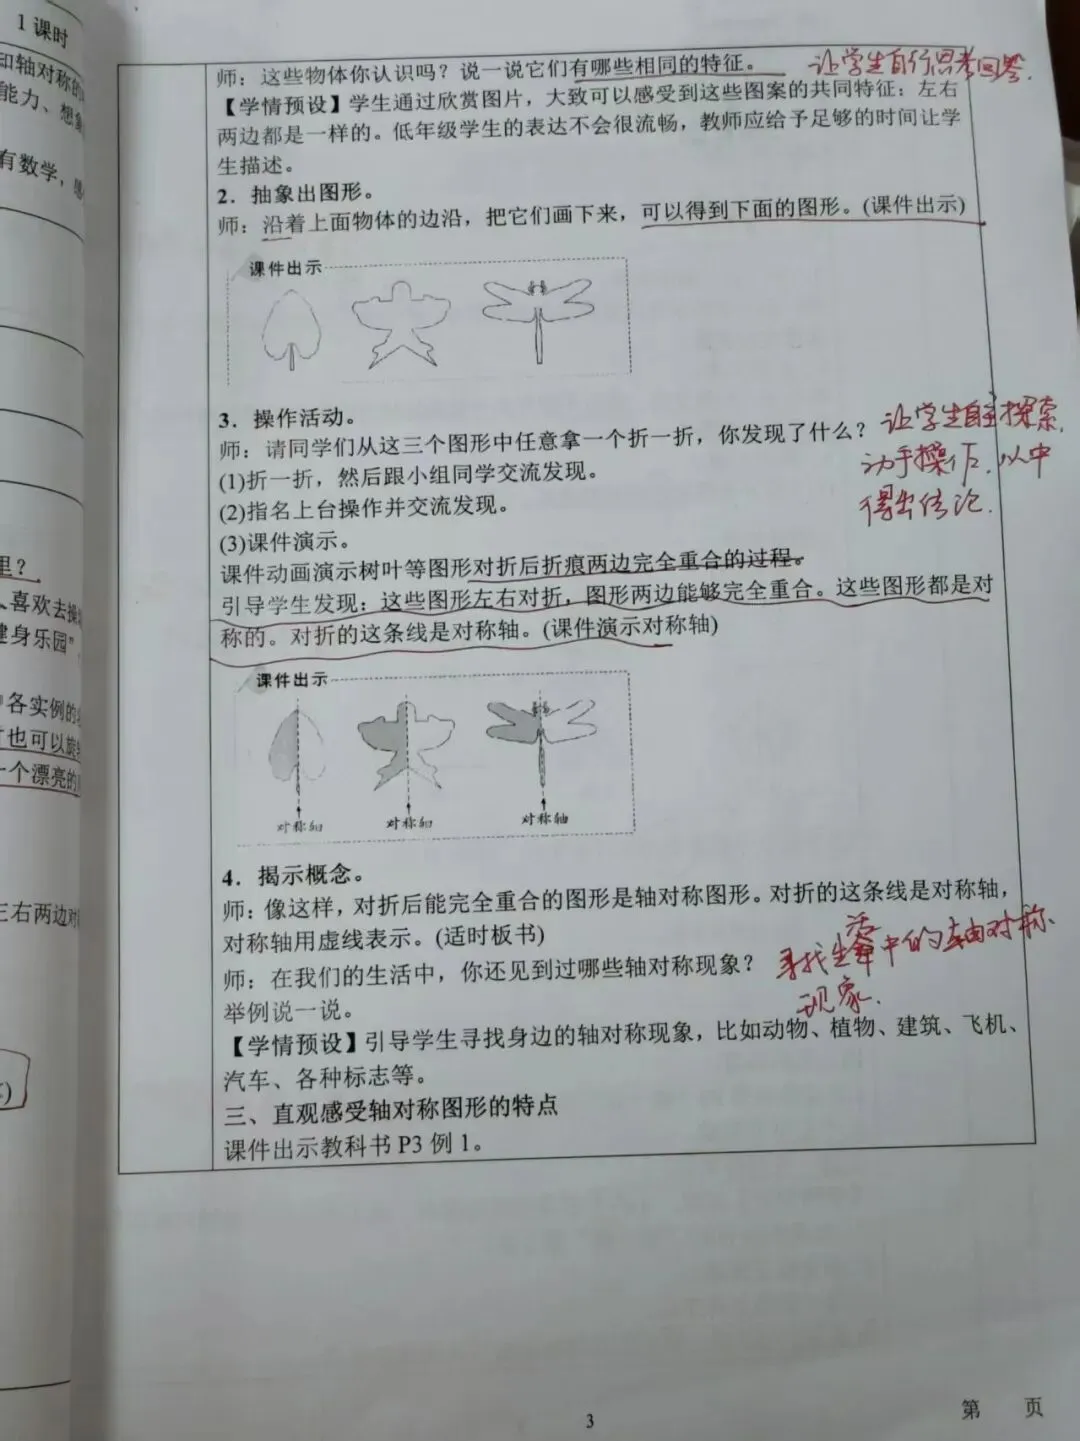 1 课时
知轴对称的
能力、想象
有数学，感
里？
、喜欢去操
健身乐园”
各实例的
也可以旋转
一个漂亮的
左右两边对
师：这些物体你认识吗？说一说它们有哪些相同的特征。 让学生自行思考回答.
【学情预设】学生通过欣赏图片，大致可以感受到这些图案的共同特征：左右
两边都是一样的。低年级学生的表达不会很流畅，教师应给予足够的时间让学
生描述。
2．抽象出图形。
师：沿着上面物体的边沿，把它们画下来，可以得到下面的图形。(课件出示)
课件出示
3．操作活动。
师：请同学们从这三个图形中任意拿一个折一折，你发现了什么？ 让学生自主探索,
(1)折一折，然后跟小组同学交流发现。 动手操作，从中
(2)指名上台操作并交流发现。 得出结论.
(3)课件演示。
课件动画演示树叶等图形对折后折痕两边完全重合的过程。
引导学生发现：这些图形左右对折，图形两边能够完全重合。这些图形都是对
称的。对折的这条线是对称轴。(课件演示对称轴)
课件出示
对称轴 对称轴 对称轴
4．揭示概念。
师：像这样，对折后能完全重合的图形是轴对称图形。对折的这条线是对称轴，
对称轴用虚线表示。(适时板书)
师：在我们的生活中，你还见到过哪些轴对称现象？ 寻找生活中的轴对称
举例说一说。 现象.
【学情预设】引导学生寻找身边的轴对称现象，比如动物、植物、建筑、飞机、
汽车、各种标志等。
三、直观感受轴对称图形的特点
课件出示教科书 P3 例 1。
3
第 页